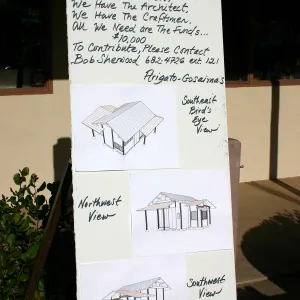 We Have The Architect,
We Have The Craftsmen,
All We Need are The Funds...
$10,000
To Contribute, Please Contact
Bob Sherwood 682-4726 ext 121
Arigato-Gosaimas
Southeast
Bird's
Eye
View
Northwest
View
Southwest
View